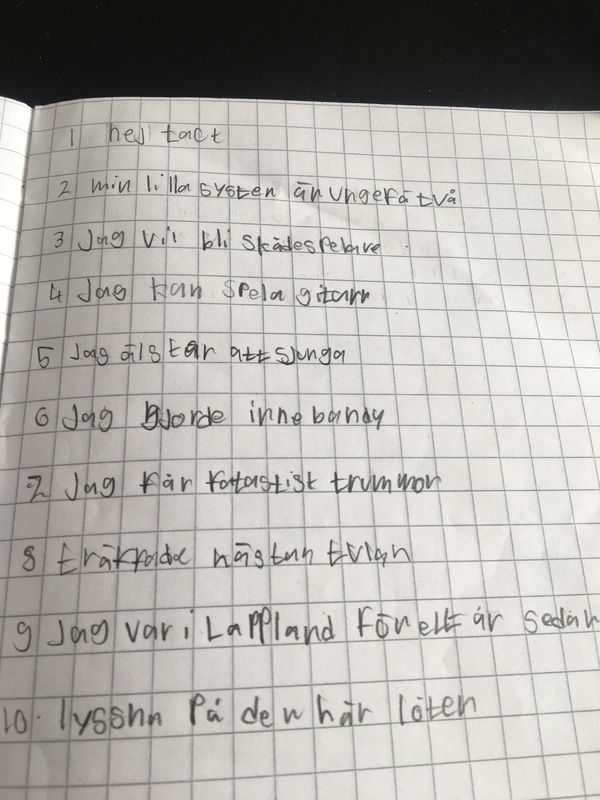 1 hej tact
2 min lilla systen än ungefä två
3 Jag vil bli skådespelare
4 Jag kan spela gitarr
5 Jag älskar att sjunga
6 Jag gjorde innebandy
7 Jag kär fatastist trummor
8 nästan
9 Jag var i Lappland för ett år sedan
10. lysshn på den här låten